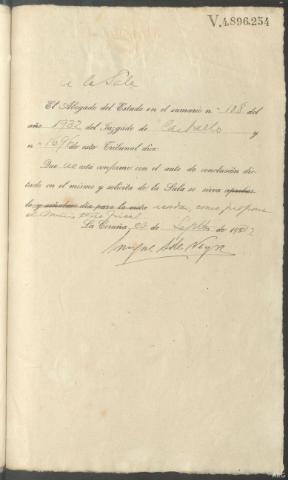 V.4.896.254
A la Sala
El Abogado del Estado en el sumario n.º 108 del
año 1932 del Juzgado de Carballo y
n.º de este Tribunal dice:
Que no está conforme con el auto de conclusión dic-
tado en el mismo y solicita de la Sala se sirva aprobar-
lo y señalar día para la vista como propone
el Ministerio fiscal
La Coruña, de Septbre de 193
ARG